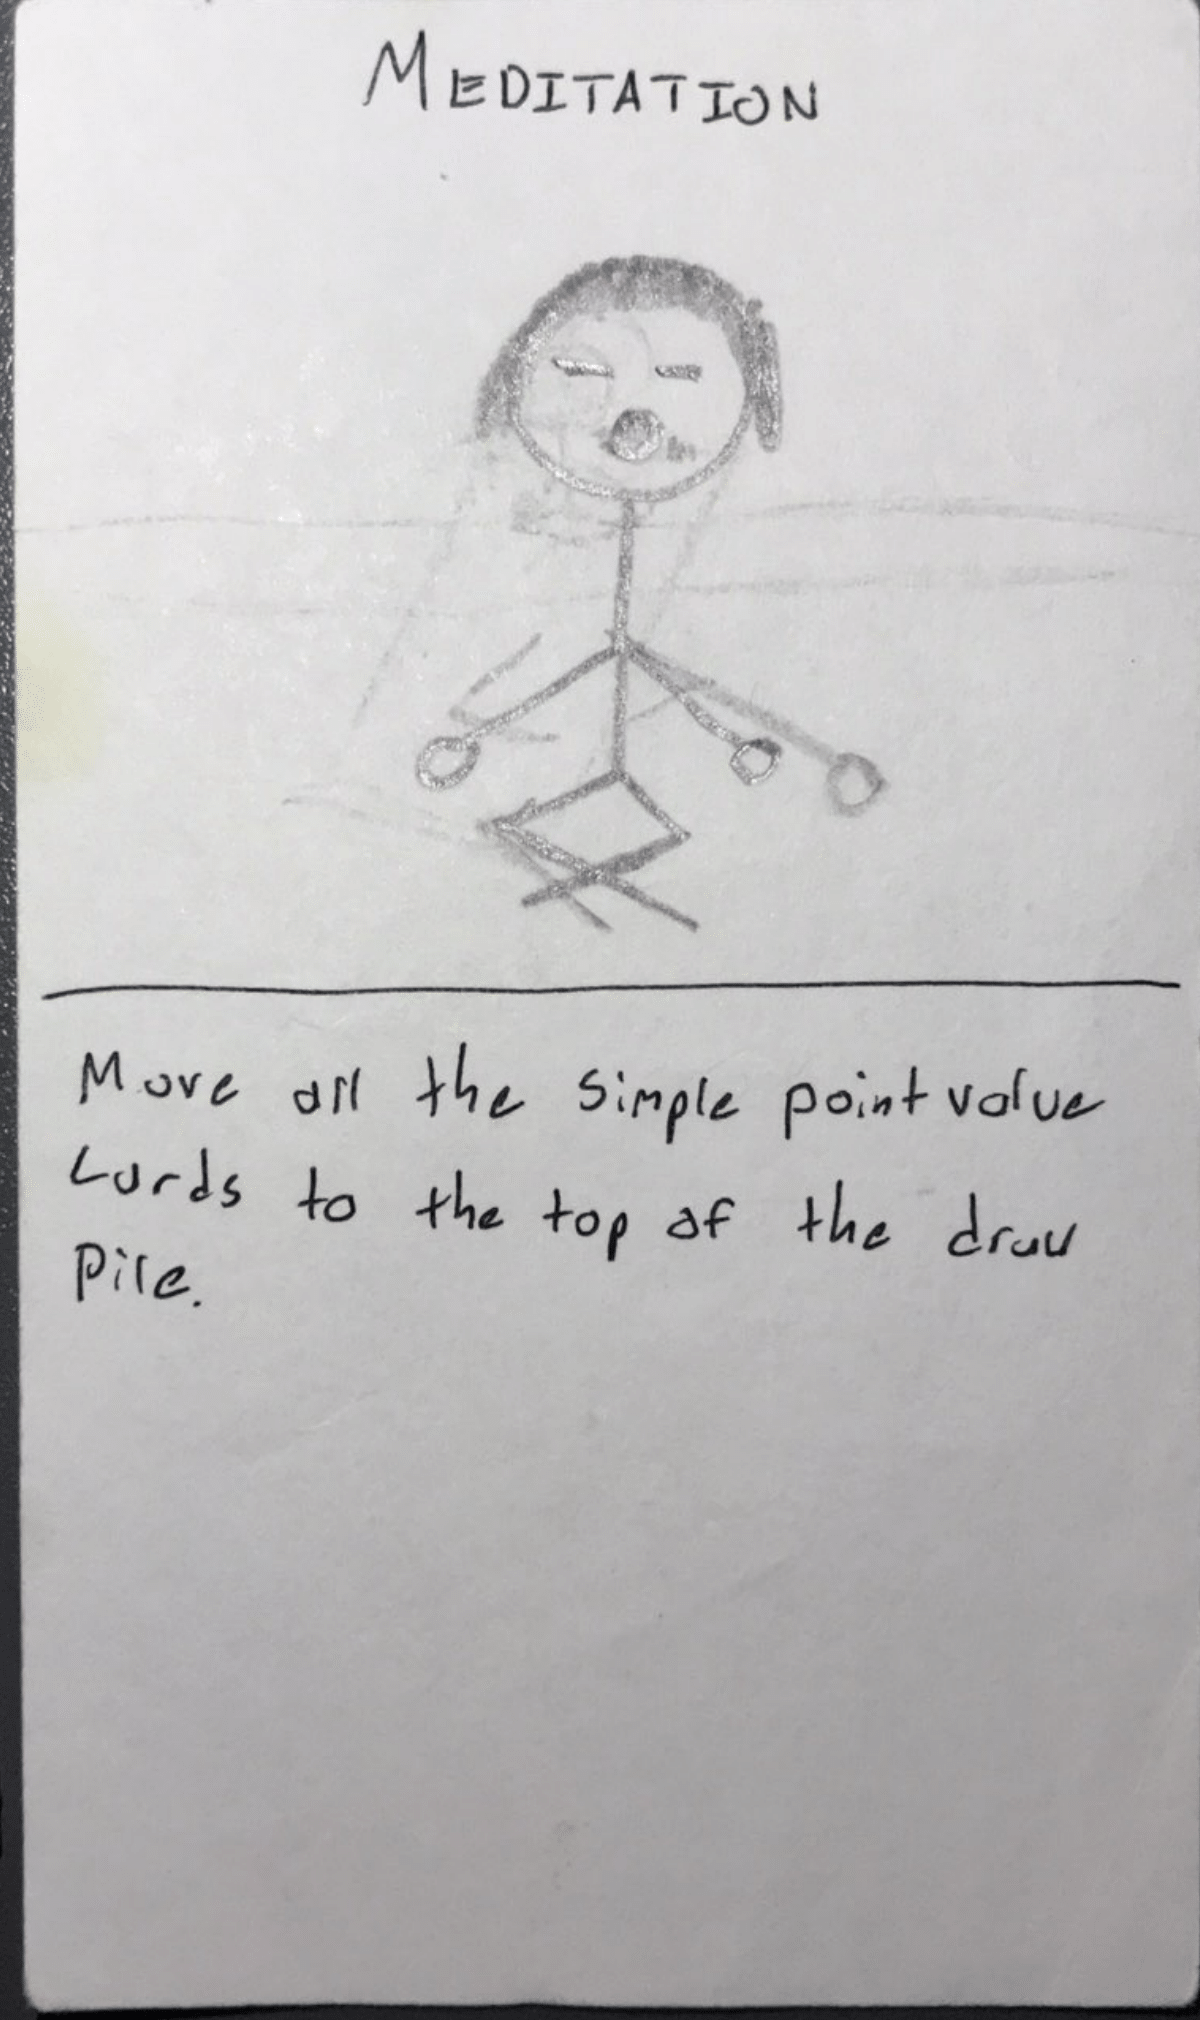 MEDITATION
Move all the simple point value
cards to the top of the draw
pile.